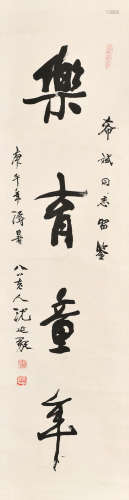 樂育童年
奋斌同志留鉴
庚午年
八十老人沈延毅